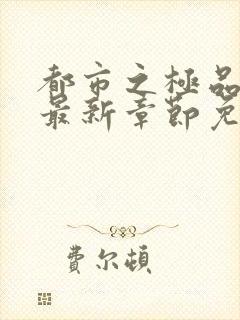 都市之極品
最新章節免
費尔頓